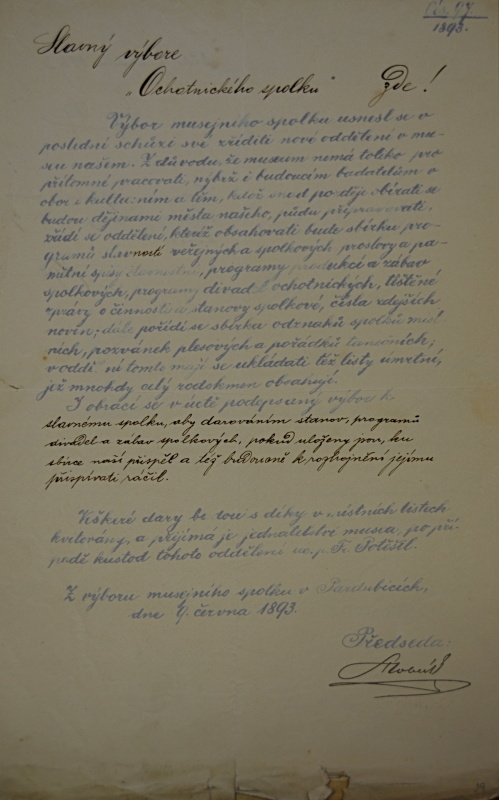 1893.
Slavný výbore
„Ochotnického spolku“ Zde!
Výbor musejního spolku usnesl se v
poslední schůzi své zříditi nové oddělení v mu-
seu našem. Z důvodu, že museum nemá toliko pro
přítomné pracovati, nýbrž i budoucím badatelům v
oboru kulturním a těm, kdož snad později obírati se
budou dějinami města našeho, půdu připravovati,
zřídí se oddělení, kteréž obsahovati bude sbírku pro-
gramů slavností veřejných a spolkových, proslovy a pa-
mětní spisy slavnostní, programy produkcí a zábav
spolkových, programy divadel ochotnických, tištěné
zprávy o činnosti a stanovy spolkové, čísla zdejších
novin; dále pořídí se sbírka odznaků spolků míst-
ních, pozvánek plesových a pořádků tanečních;
v oddělení tomto mají se ukládati též listy úmrtní,
jež mnohdy celý rodokmen obsahují.
I obrací se v úctě podepsaný výbor k
slavnému spolku, aby darováním stanov, programů
divadel a zábav spolkových, pokud uloženy jsou, ku
sbírce naší přispěl a též budoucně k rozhojnění jejímu
přispívati ráčil.
Veškeré dary budou s díky v místních listech
kvitovány, a přijímá je jednatelství musea, po pří-
padě kustod tohoto oddělení p. Fr. Potěšil.
Z výboru musejního spolku v Pardubicích,
dne 9. června 1893.
Předseda: